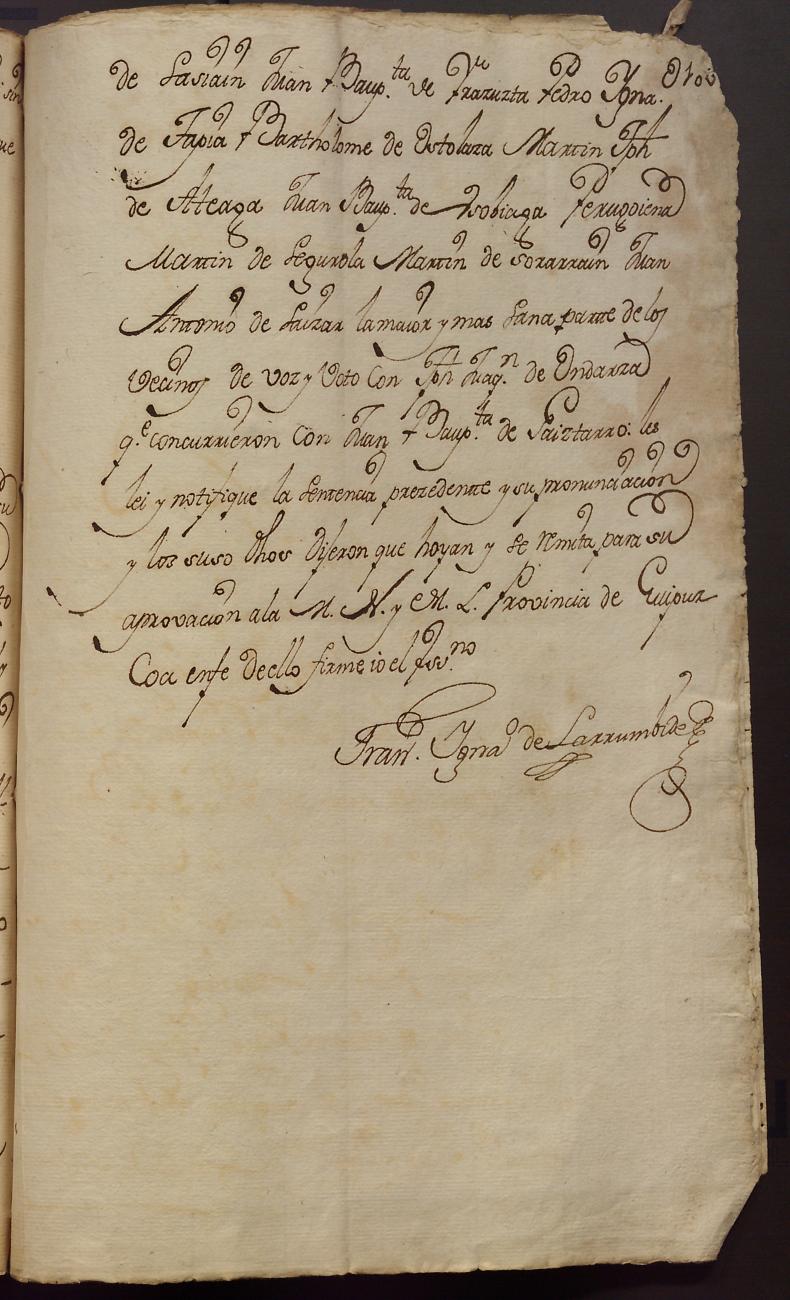 de Lasiain Juan Baup.ta de Yrazuzta Pedro Ygna.
de Tapia Bartholome de Ostolaza Martin Jph
de Ateaga Juan Baup.ta de Usobiaga Perugoiena
Martin de Segurola Martin de Sorarrain Juan
Antonio de Laizar la maior y mas sana parte de los
Vecinos de voz y Voto con Jph Juaq.n de Undarza
q.e concurrieron con Juan Baup.ta de Saiztarro: les
lei y notifique la sentencia prezedente y su pronunciacion
y los suso dhos dijeron que hoyan y se remita para su
aprovacion ala M. N. y M. L. Provincia de Guipuz
Coa enfe deello firme io el Ess.no
Fran.co Ygna.o de Larrumbide